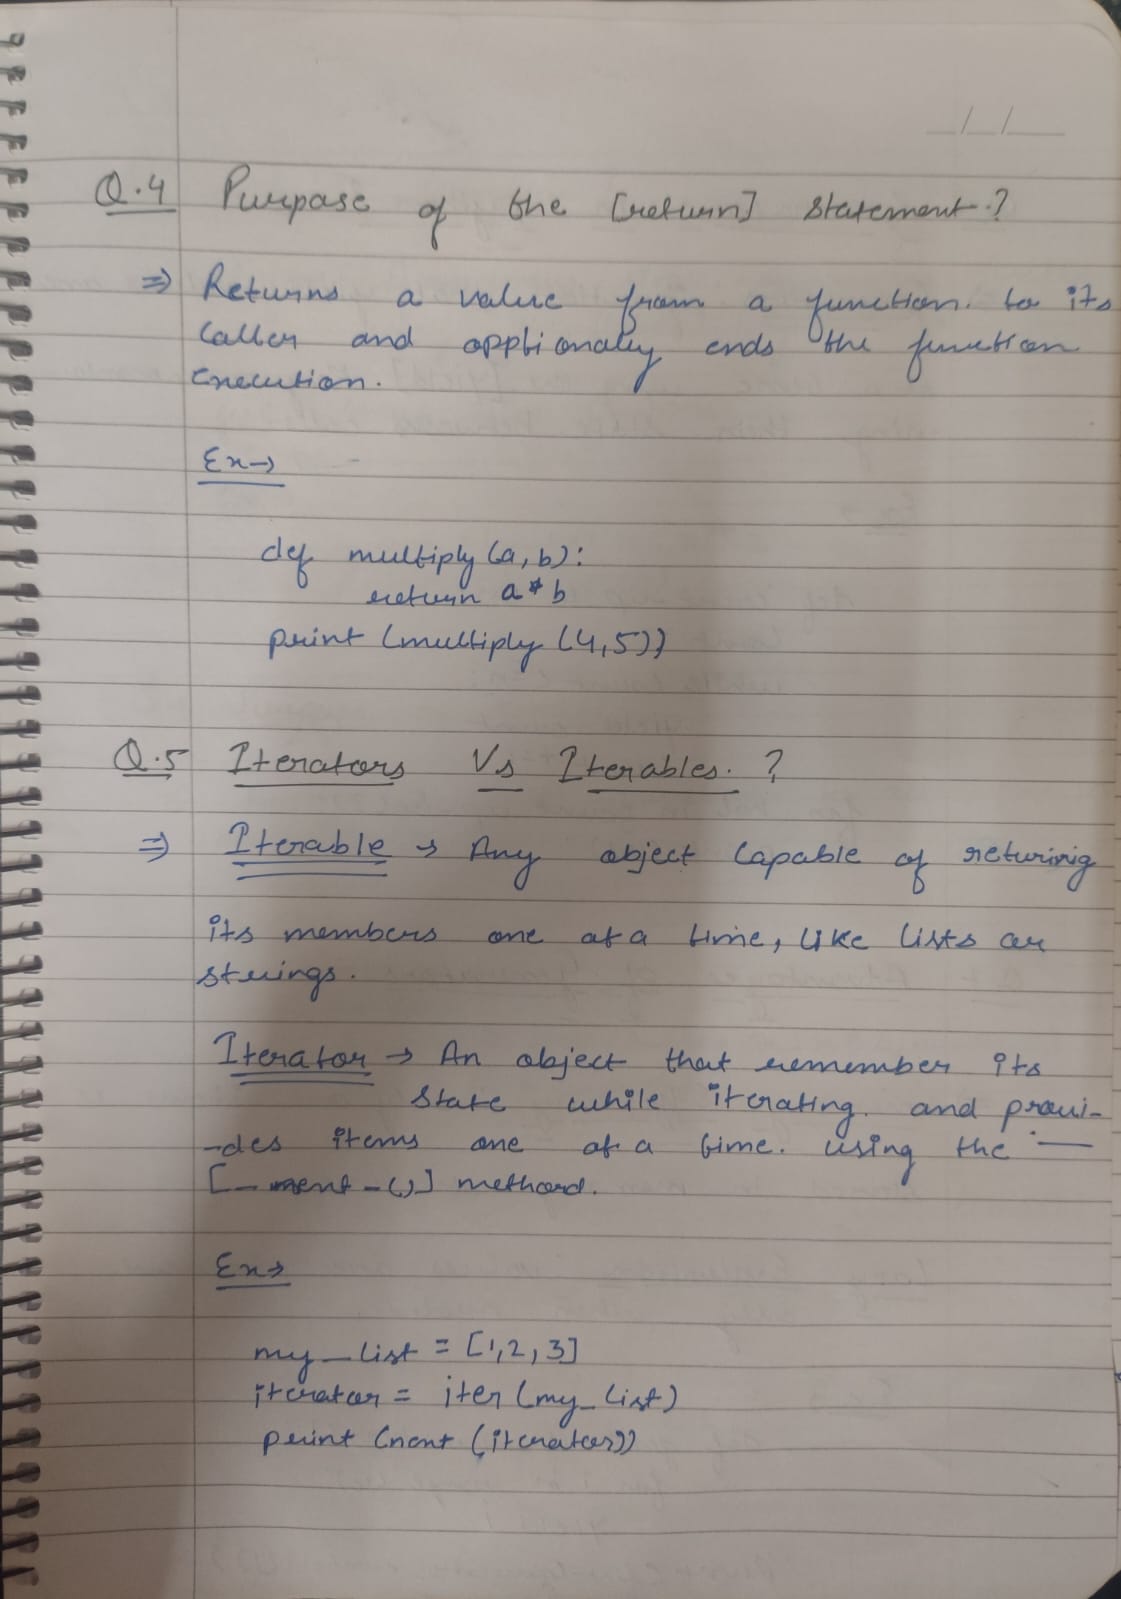 _/_/_
Q.4 Purpose of the [return] statement.?
⇒ Returns a value from a function. to its
caller and opptionaley ends the function
execution.
Ex→
def multiply (a, b):
return a * b
print (multiply (4,5))
Q.5 Iterators Vs Iterables. ?
⇒ Iterable → Any object capable of returing
its members one at a time, like lists or
strings.
Iterator → An object that remember its
state while iterating. and provi-
-des items one at a time. using the
[__next_()] method.
Ex→
my_list = [1,2,3]
iterator = iter (my_list)
print (next (iterator))